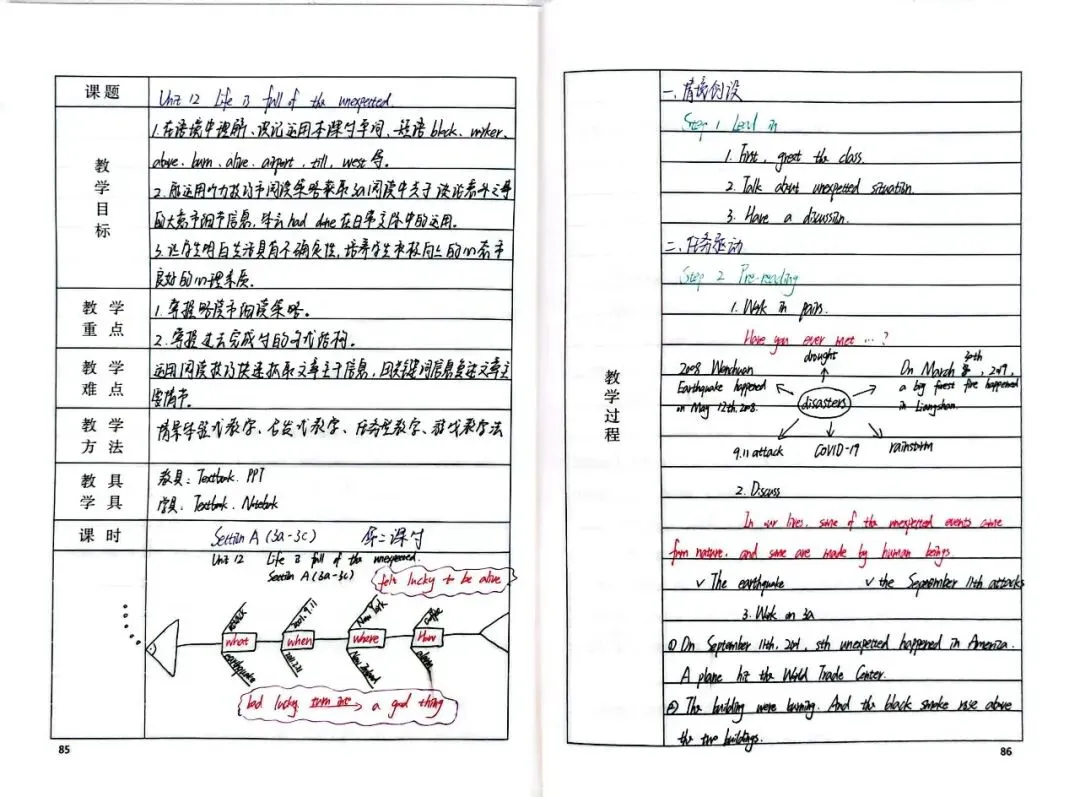 课题
Unit 12 Life is full of the unexpected.
教学目标
1.在语境中理解、识记运用本课时单词、短语 block、worker、
above、burn、alive、airport、till、west等。
2.能运用听力技巧和阅读策略获取3a阅读中关于谈论意外之事
的大意和细节信息,学会had done在日常交际中的运用。
3.让学生明白生活具有不确定性,培养学生积极向上的心态和
良好的心理素质。
教学重点
1.掌握略读和细读策略。
2.掌握过去完成时的句式结构。
教学难点
运用阅读技巧快速抓取文章主干信息,用关键词信息复述文章主
要情节。
教学方法
情景体验式教学、启发式教学、任务型教学、游戏教学法
教具
学具
教具:Textbook. PPT
学具:Textbook. Notebook
课时
Section A (3a-3c) 第二课时
Unit 12 Life is full of the unexpected
Section A (3a-3c)
felt lucky to be alive
attack
2001.9.11
New York
coffee
what
when
where
How
earthquake
2011.2.21
New Zealand
alarm
bad lucky turn into a good thing
85
教学过程
一、情境创设
Step 1 Lead in
1. First, greet the class.
2. Talk about unexpected situation.
3. Have a discussion.
二、任务驱动
Step 2 Pre-reading
1. Work in pairs.
Have you ever met ...?
2008 Wenchuan
Earthquake happened
on May 12th.2008.
drought
On March 30th, 2019,
a big forest fire happened
in Liangshan.
disasters
9.11 attack
COVID-19
rainstorm
2. Discuss
In our lives, some of the unexpected events come
from nature, and some are made by human beings.
✓ The earthquake ✓ the September 11th attacks
3. Work on 3a
① On September 11th, 2001, sth unexpected happened in America.
A plane hit the World Trade Center.
② The building were burning. And the black smoke rise above
the two buildings.
86